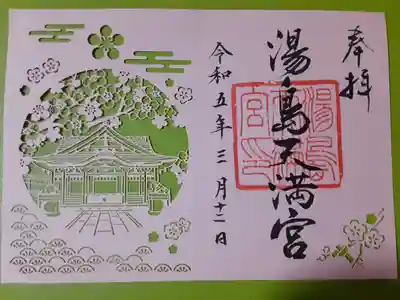 奉拝
湯島天満宮
令和五年三月十二日
湯島